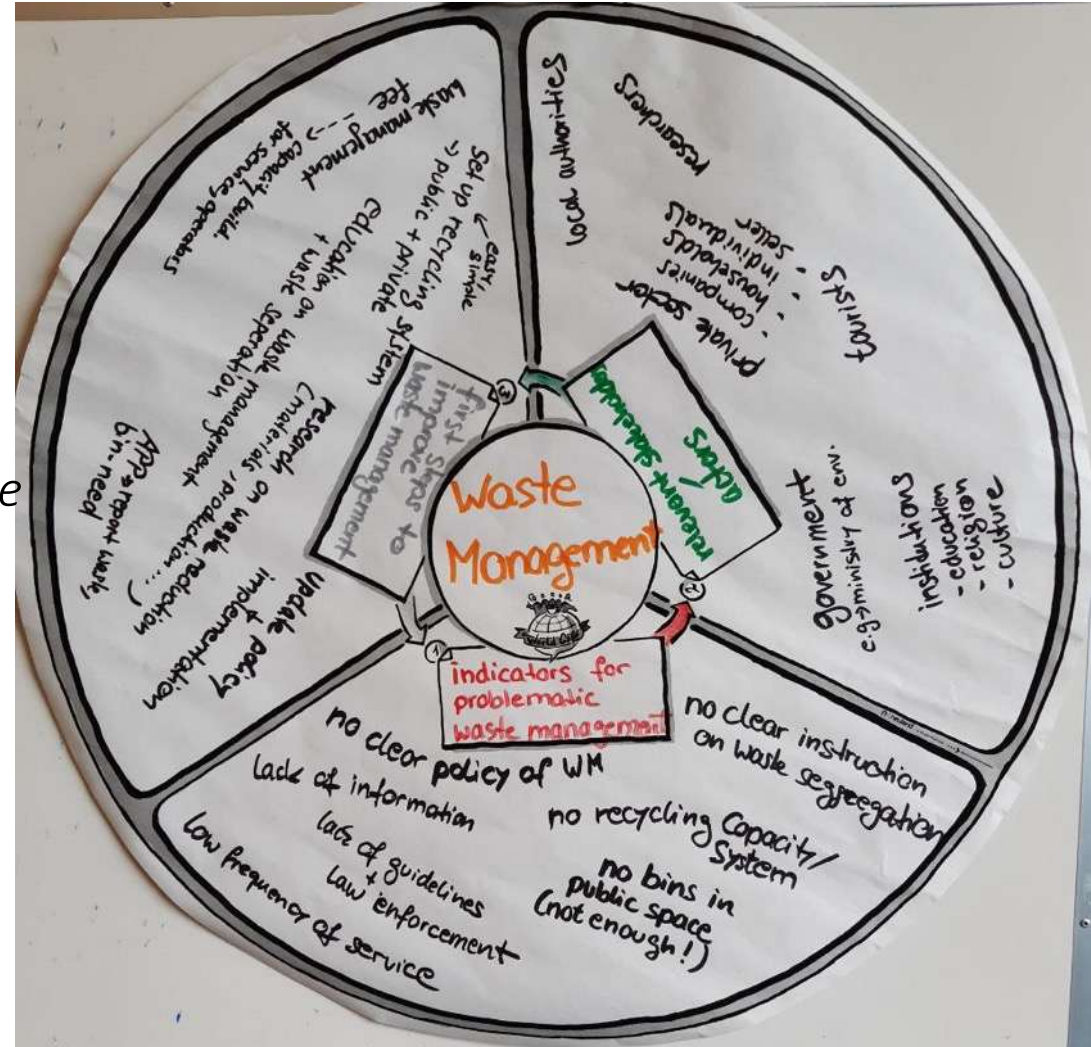 Waste
Management
①
indicators for
problematic
waste management
no clear policy of WM
lack of information
lack of guidelines
+
law enforcement
low frequency of service
no clear instruction
on waste seggreegation
no recycling Capacity/
System
no bins in
public space
(not enough!)
②
relevant stakeholder
actors
local authorities
researchers
private sector
- companies
- households
- individuals
- seller
tourists
government
e.g. ministry of env.
institutions
- education
- religion
- culture
③
first steps to
improve
waste management
waste management
fee ---> capacity build.
for service, operators
set up recycling system
→ public + private
easy,
simple
education on waste management
+ waste seperation
research on waste reduction
(materials, production ...)
App → report waste,
bin-need
update policy
+
implementation
e